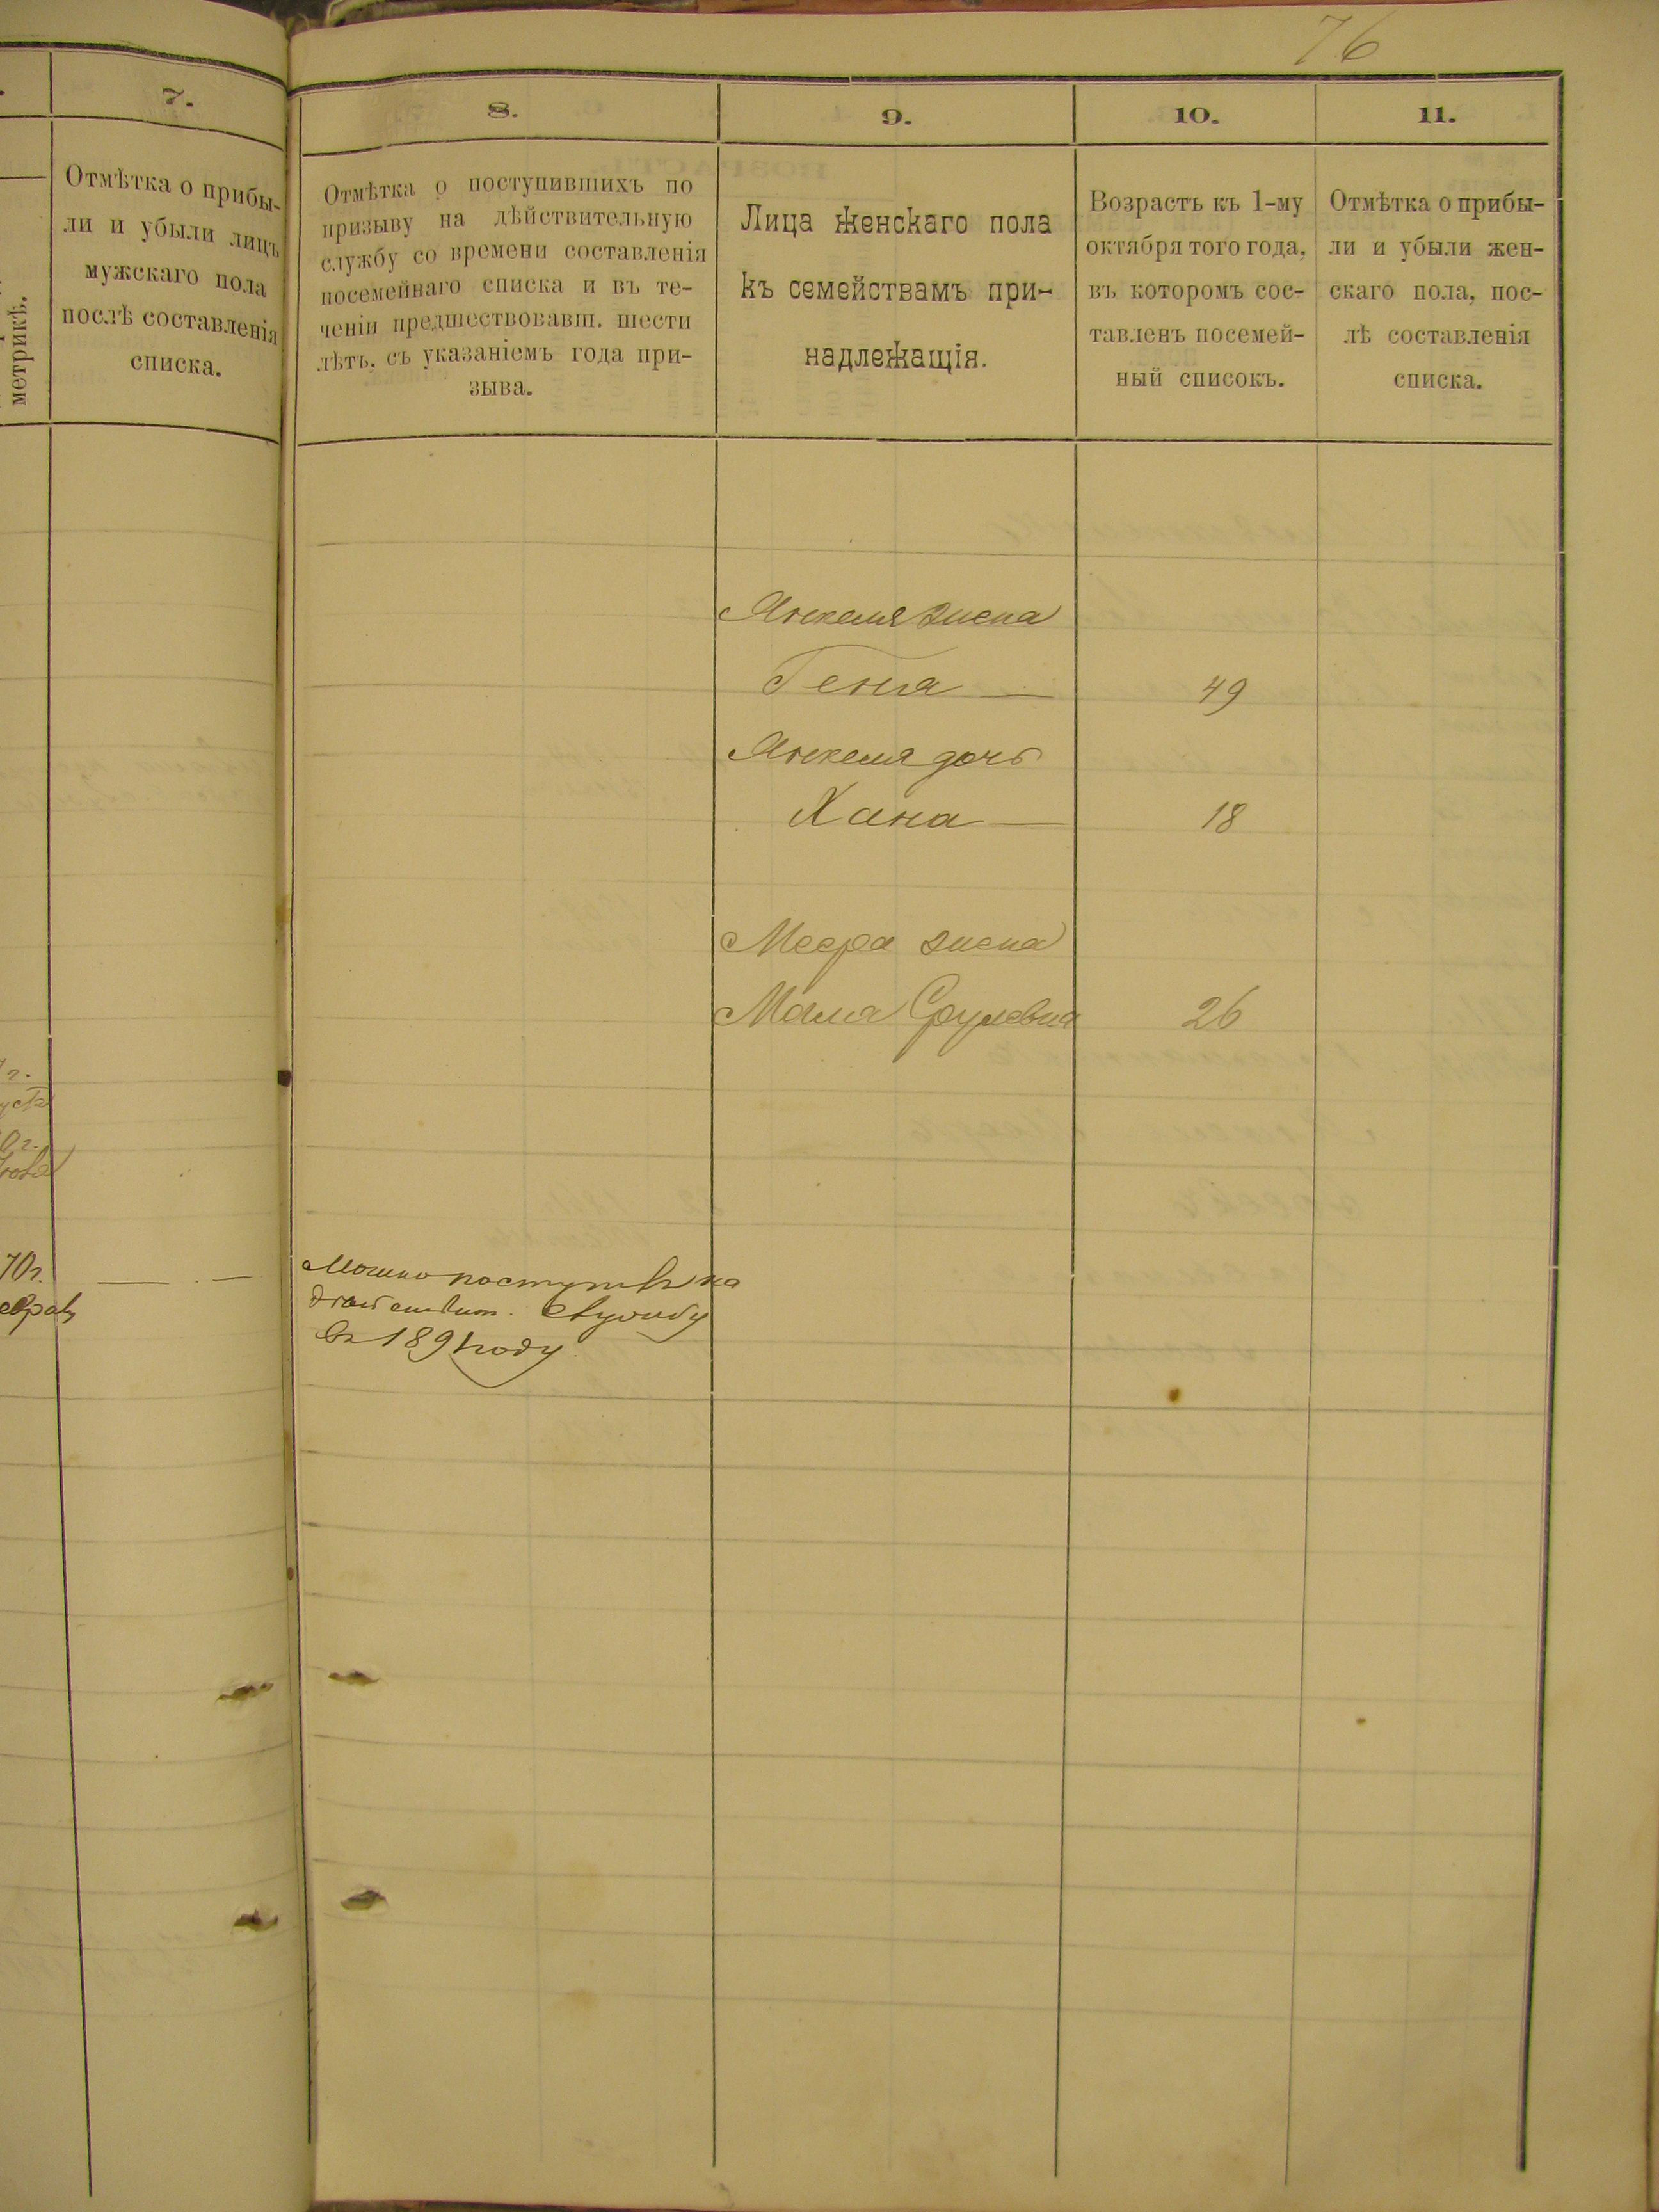 76
7.
8.
9.
10.
11.
метрикѣ.
Отмѣтка о прибы-
ли и убыли лицъ
мужскаго пола
послѣ составленія
списка.
Отмѣтка о поступившихъ по
призыву на дѣйствительную
службу со времени составленія
посемейнаго списка и въ те-
ченіи предшествовавш. шести
лѣтъ, съ указаніемъ года при-
зыва.
Лица женскаго пола
къ семействамъ при-
надлежащія.
Возрастъ къ 1-му
октября того года,
въ которомъ сос-
тавленъ посемей-
ный списокъ.
Отмѣтка о прибы-
ли и убыли жен-
скаго пола, пос-
лѣ составленія
списка.
Янкеля жена
Геня — 49
Янкеля дочь
Хана — 18
Меера жена
Маля Срулевна 26
70г.
Мошко поступилъ на
дѣйствит. службу
въ 1891 году